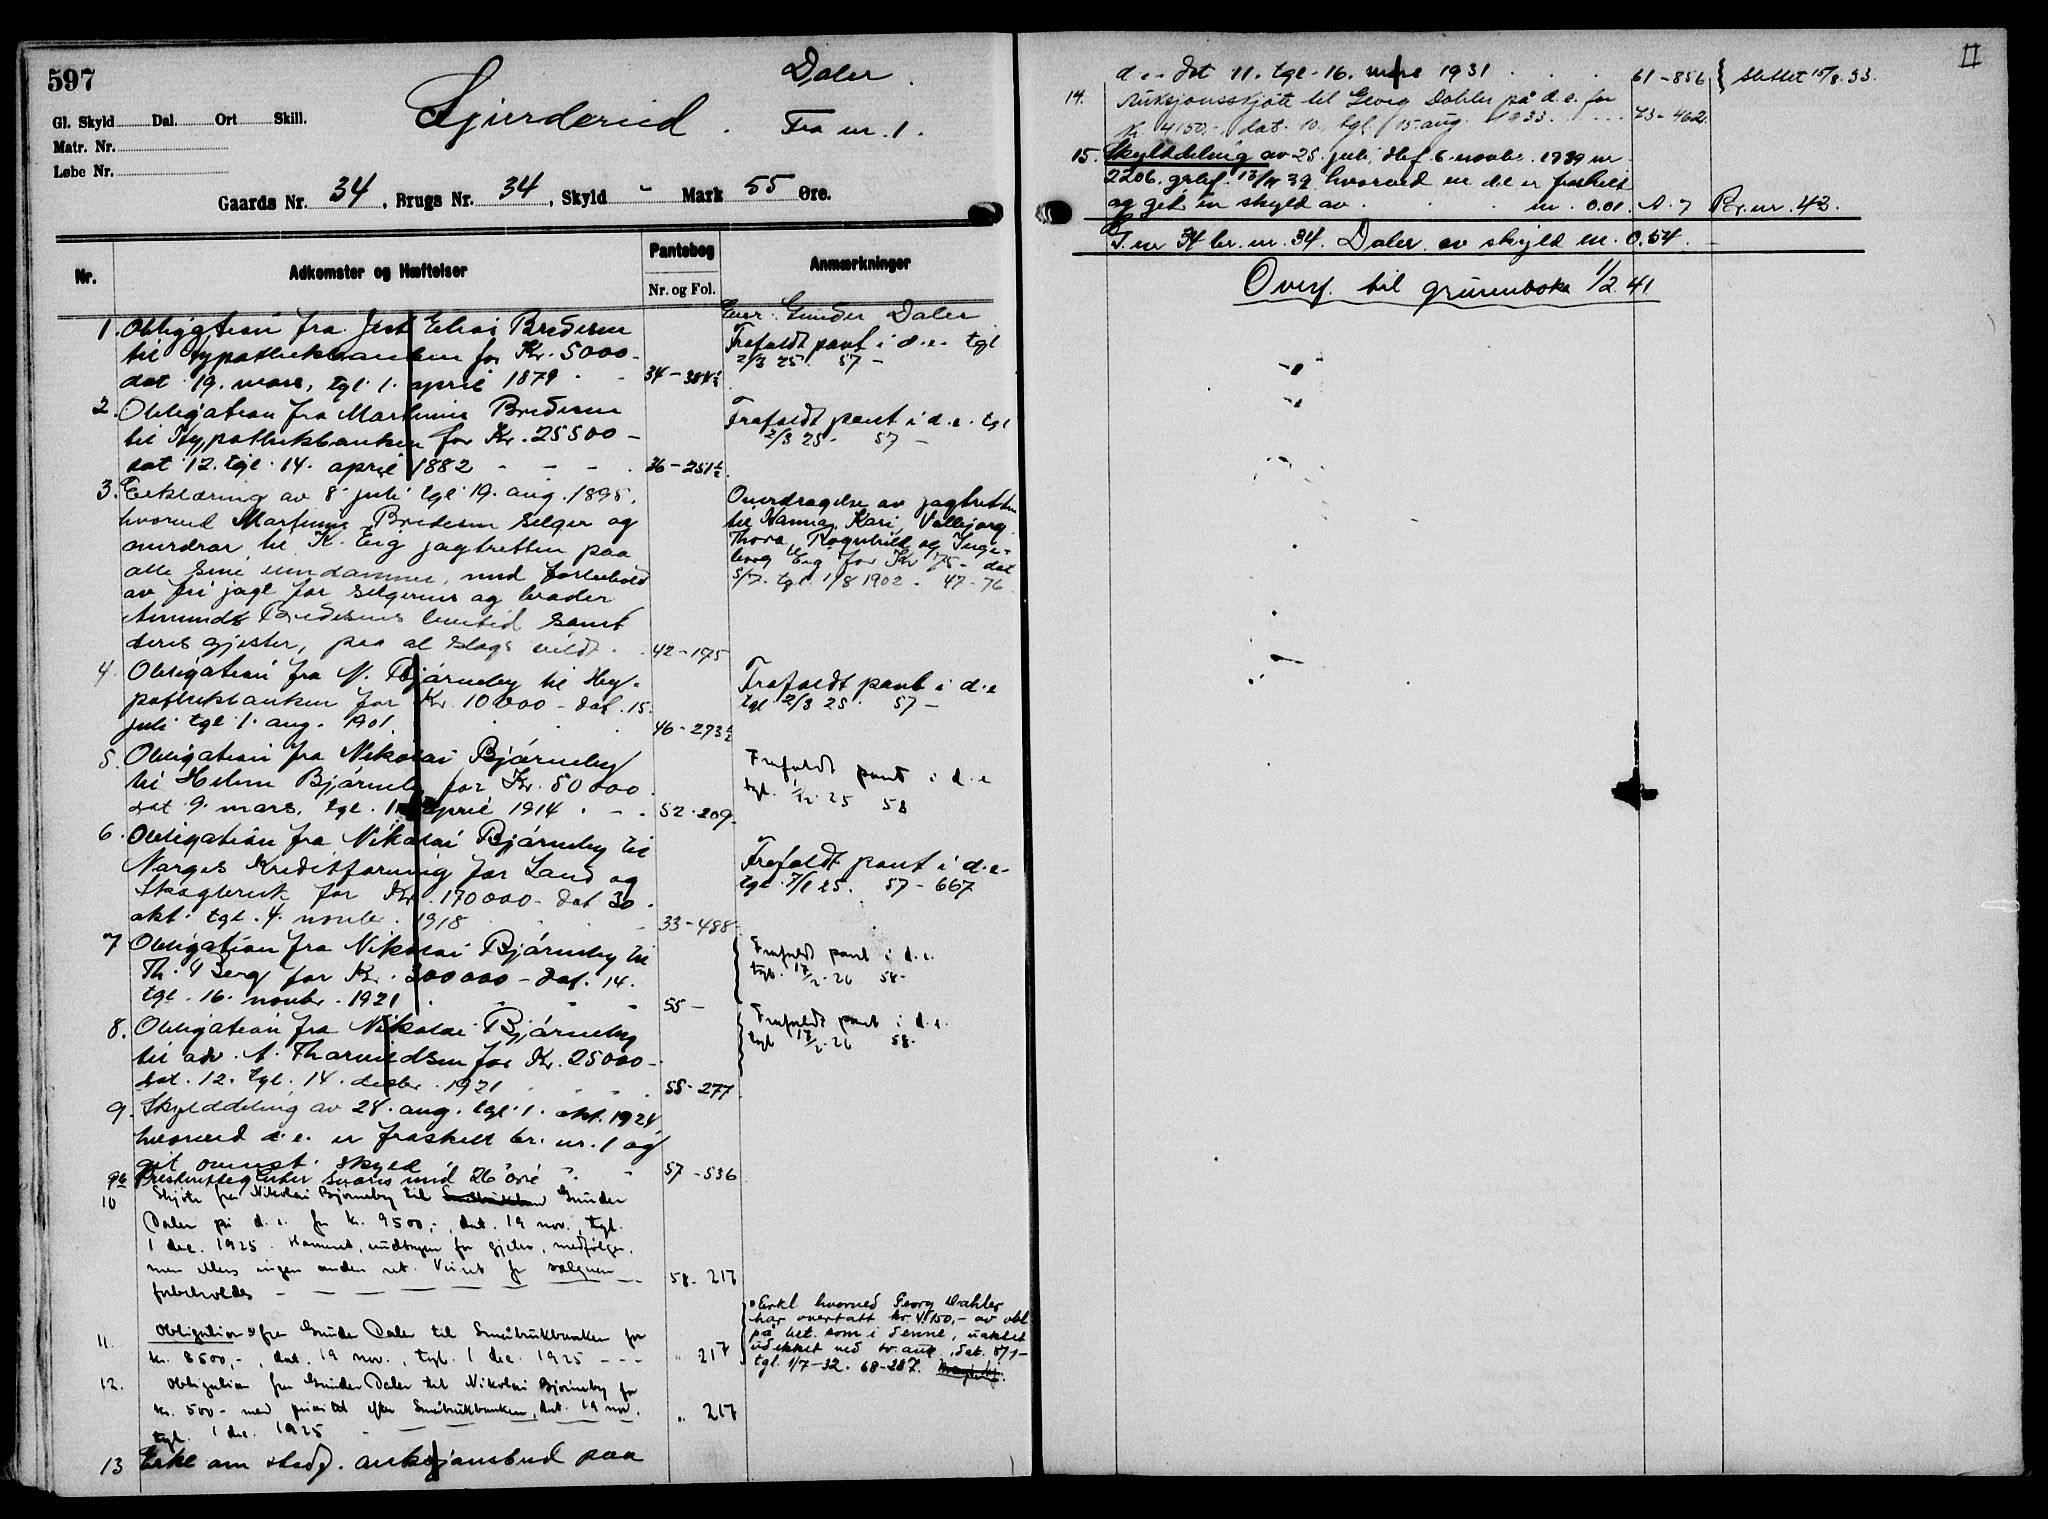 597
Daler.
Gl. Skyld Dal. Ort Skill.
Fra nr. 1.
Matr. Nr.
Løbe Nr.
Gaards Nr. 34, Brugs Nr. 34, Skyld - Mark 55 Øre.
Nr. Adkomster og Hæftelser Pantebog Anmærkninger
Nr. og Fol.
Eier: Gunder Daler
1. Obligation fra Bredesen
til Hypothekbanken for Kr. 5000-
dat 19. mars, tgl. 1. april 1879
Frafaldt pant i d.e. tgl
2/3 25. 57 -
2. Obligation fra Martinius Bredesen
til Hypothekbanken for Kr. 25500 -
dat 12. tgl. 14. april 1882 - - - 36-251½
Frafaldt pant i d.e. tgl
2/3 25. 57 -
3. Erklæring av 8 juli tgl 19. aug. 1895,
hvorved Martinius Bredesen selger og
overdrar til K. Eig jagtretten paa
alle sine eiendommer, med forbehold
av fri jagt for selgerens og broder
Amunds Bredesens levetid samt
deres gjester, paa al slags vildt. 42-175
Overdragelse av jagtretten
til Hanna, Kari, Valbjørg
Thora, Ragnhild og Inge-
borg Eig for Kr 75- dat
5/7. tgl. 1/8 1902. 47-76
4. Obligation fra N. Bjørneby til Hy-
pothekbanken for Kr. 10000 - dat. 15.
juli tgl 1. aug. 1901 46-273½
Frafaldt pant i d.e
tgl 2/3 25. 57 -
5. Obligation fra Nikolai Bjørneby
til Helene Bjørneby for Kr. 50000.
dat 9. mars, tgl. 1. april 1914 52-209.
Frafaldt pant i d.e
tgl. 1/12. 25 58
6. Obligation fra Nikolai Bjørneby til
Norges Kreditforening for Land og
Skogbruk for Kr. 170000- dat 30.
okt. tgl. 4. novbr. 1918 33-488.
Frafaldt pant i d.e.
57-667
7 Obligation fra Nikolai Bjørneby til
Th. Berg for Kr. 300000 - dat. 14.
tgl. 16. novbr. 1921 55 -
Frafaldt pant i d.e.
tgl. 17/2. 26 58-
8. Obligation fra Nikolai Bjørneby
til adv. A. Thorvildsen for Kr. 25000-
dat. 12. tgl. 14. decbr. 1921 55-277
Frafaldt pant i d.e.
tgl 17/2. 26 58-
9. Skylddeling av 28. aug. tgl. 1. okt. 1924,
hvorved d.e. er fraskilt br. nr. 1 og
git ovenst. skyld 57-536
9a svares med 26 øre
10 Skjøte fra Nikolai Bjørneby til Gunder
Daler på d.e. for kr. 9500,-, dat. 19 nov., tgl.
1 dec. 1925. medfølger,
men ellers ingen anden ret.
forbeholdes - - - 58-217
11. Obligation fra Gunder Daler til Småbrukbanken for
kr. 8500,-, dat. 19 nov., tgl. 1 dec. 1925 - - - " 217
Erkl. hvorved Georg Dahler
har overtatt kr 4150,- av obl
på bet. som i denne,
tgl. 1/7-32. 68-287.
12. Obligation fra Gunder Daler til Nikolai Bjørneby for
kr. 500- med prioritet efter Småbrukbanken, dat. 19 nov.
tgl. 1 dec. 1925 " 217
13 Erkl om stadf. auksjonsbud paa
II
d.e. dat 11. tgl. 16. mars 1931 61-856 Slettet 15/8.33.
14. Auksjonsskjøte til Georg Dahler på d.e. for
kr. 4150,-, dat. 10. tgl. 15. aug. 1933. 73-462.
15. Skylddeling av 25. juli, tgl. 6. novbr. 1939 nr
2206. hvorved en del er fraskilt
og git en skyld av m. 0.01. A. 7 Br. nr. 43.
G. nr 34 br. nr. 34. Daler av skyld m. 0.54.
Overf. til grunnboka 1/2 41